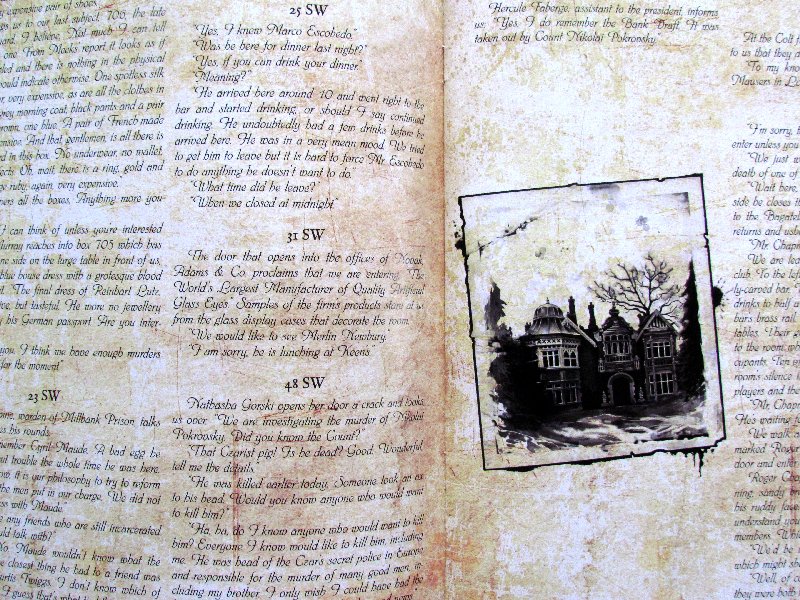 expensive pair of shoes.
gs us to our last subject 706, the late
uard, I believe. Not much I can tell
one. From Mack's report it looks as if
led and there is nothing in the physical
ould indicate otherwise. One spotless silk
r, very expensive, as are all the clothes in
grey morning coat, black pants and a pair
rown, one blue. A pair of French made
ensive. And that, gentlemen, is all there is
d in this box. No underwear, no wallet,
ects. Oh, wait, there is a ring, gold and
ge ruby, again, very expensive.
ers all the boxes. Anything more you
I can think of unless you're interested
urray reaches into box 705 which has
ne side on the large table in front of us,
blue house dress with a grotesque blood
t. "The final dress of Reinhart Lutz.
ive, but tasteful. He wore no jewellery
y his German passport. Are you inter-
you, I think we have enough murders
for the moment."
23 SW
ome, warden of Millbank Prison, talks
es his rounds.
member Cyril Maude. A bad egg he
ut trouble the whole time he was here.
ow, it is our philosophy to try to reform
the men put in our charge. We did not
ss with Maude.
e any friends who are still incarcerated
uld talk with?"
No. Maude wouldn't know what the
e closest thing he had to a friend was
urtis Twiggs. I don't know which of
I guess that's
25 SW
"Yes, I knew Marco Escobedo."
"Was he here for dinner last night?"
"Yes, if you can drink your dinner."
"Meaning?"
"He arrived here around 10 and went right to the
bar and started drinking, or should I say continued
drinking. He undoubtedly had a few drinks before he
arrived here. He was in a very mean mood. We tried
to get him to leave but it is hard to force Mr. Escobedo
to do anything he doesn't want to do."
"What time did he leave?"
"When we closed at midnight."
31 SW
The door that opens into the offices of Nook,
Adams & Co. proclaims that we are entering, "The
World's Largest Manufacturer of Quality Artificial
Glass Eyes." Samples of the firm's products stare at us
from the glass display cases that decorate the room.
"We would like to see Merlin Newbury."
"I am sorry, he is lunching at Keens."
48 SW
Nathasha Gorski opens her door a crack and looks
us over. "We are investigating the murder of Nikolai
Pokronsky. Did you know the Count?"
"That Czarist pig! Is he dead? Good. Wonderful,
tell me the details."
"He was killed earlier today. Someone took an ax
to his head. Would you know anyone who would want
to kill him?"
"Ha, ha, do I know anyone who would want to kill
him? Everyone I know would like to kill him, including
me. He was head of the Czar's secret police in Europe
and responsible for the murder of many good men, in-
cluding my brother. I only wish I could have had the
Hercule Faberge, assistant to the president, informs
us, "Yes, I do remember the Bank Draft. It was
taken out by Count Nikolai Pokronsky."
At the Colt
to us that they a
"To my kno
Mausers in Lo
"I'm sorry,
enter unless you
"We just w
death of one of
"Wait here,
side he closes it
to the Bagatel
returns and ushe
"Mr. Chap
We are lea
club. To the lef
ly-carved bar.
drinks to half a
bars brass rail.
tables. Their
to the room wh
cupants. Ten
rooms silence i
players and the
"Mr. Chap
He's waiting f
We walk a
marked Roger
door and enter
Roger Cha
ning, sandy
his ruddy face
understand you
members. Whi
"We'd be
which might sh
"Well, of c
they were both